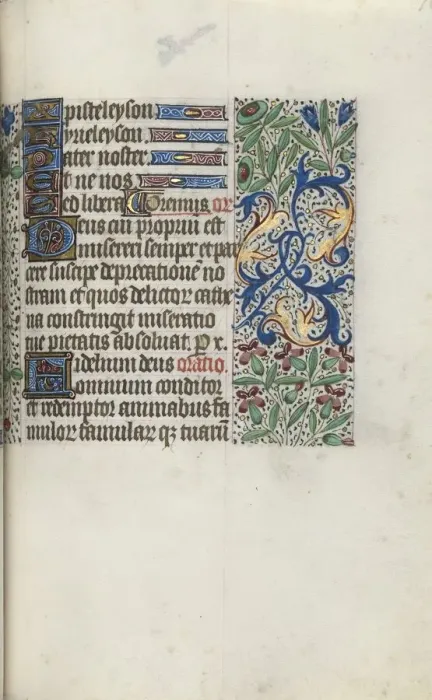 Xpisteleyson.
Kyrieleyson.
Pater noster.
Et ne nos.
Sed libera Oremus or
Deus cui propriū est
misereri semper et par
cere suscipe deprecationē no
stram et quos delictor cathe
na constringit miseratio
tue pietatis absoluat. P x.
Fidelium deus oratio.
omnium conditor
et redemptor animabus fa
mulor famular qz tuarū